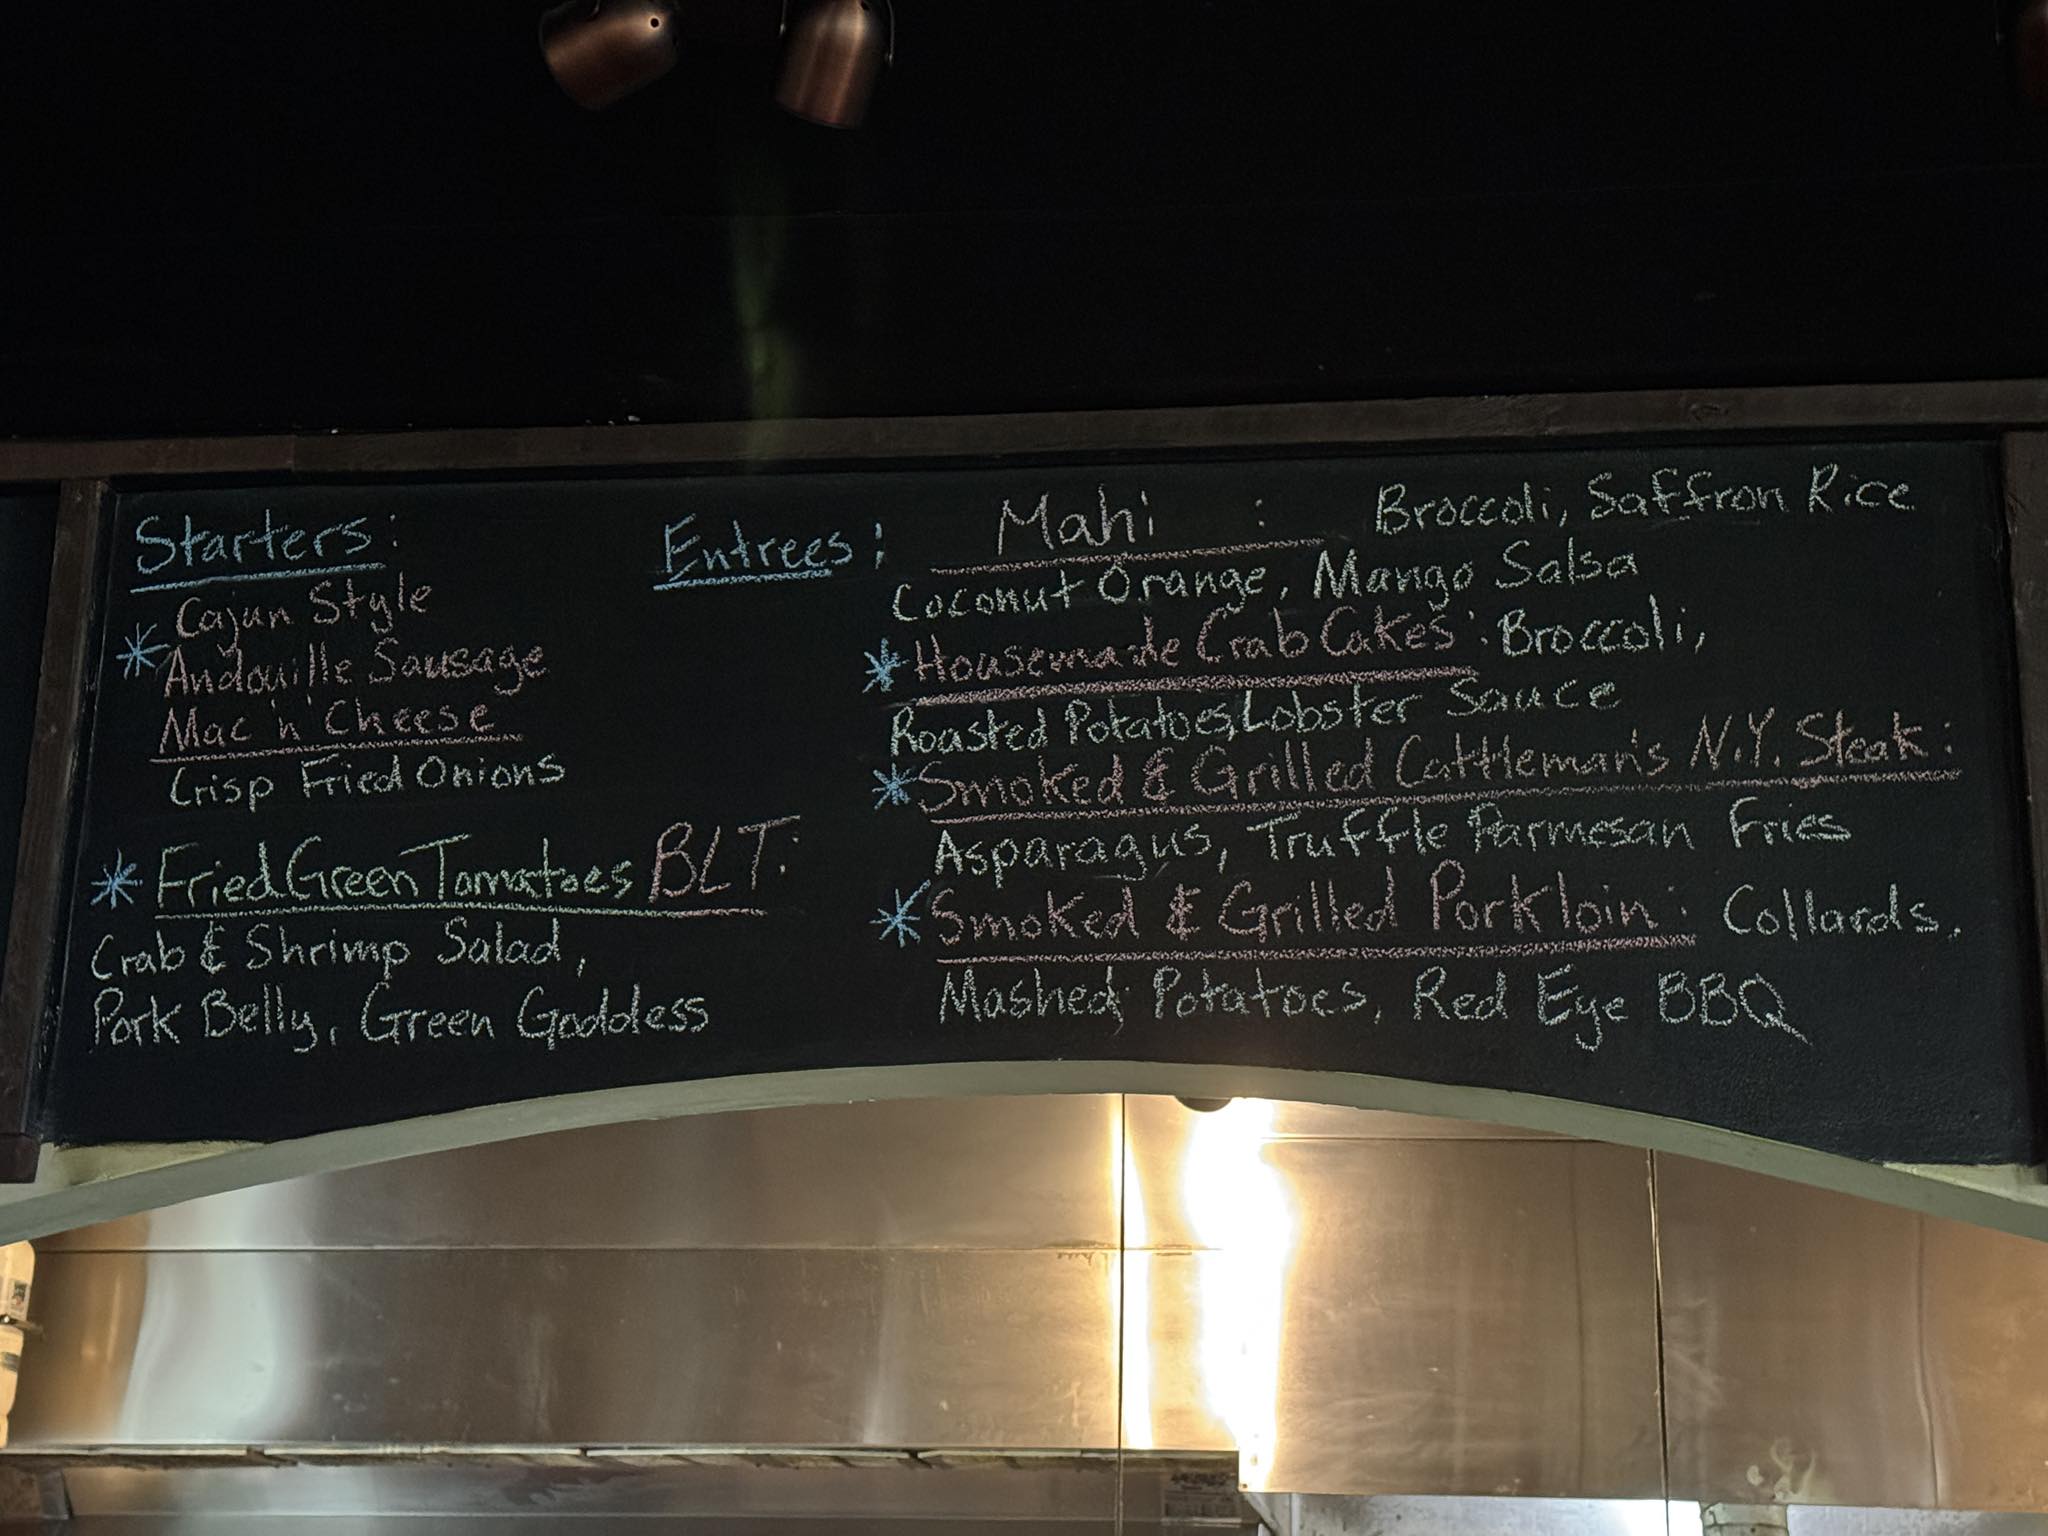 Starters:
* Cajun Style
Andouille Sausage
Mac 'n' Cheese
Crisp Fried Onions
* Fried Green Tomatoes BLT:
Crab & Shrimp Salad,
Pork Belly, Green Goddess
Entrees:
Mahi : Broccoli, Saffron Rice
Coconut Orange, Mango Salsa
* Housemade Crab Cakes: Broccoli,
Roasted Potatoes, Lobster Sauce
* Smoked & Grilled Cattleman's N.Y. Steak:
Asparagus, Truffle Parmesan Fries
* Smoked & Grilled Pork loin: Collards,
Mashed Potatoes, Red Eye BBQ